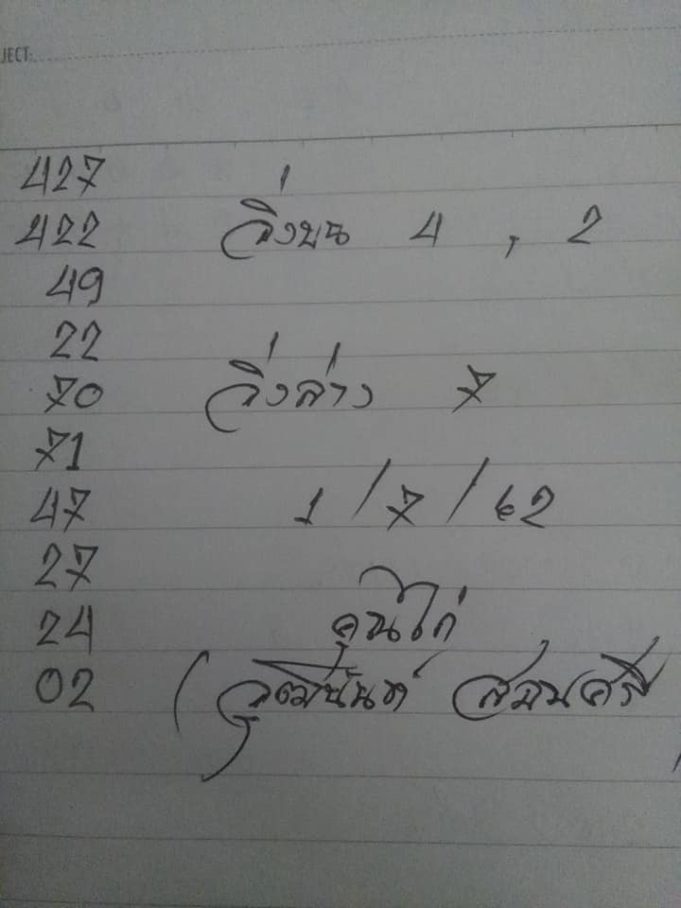 JECT:
427
422 วิ่งบน 4 , 2
49
22
70 วิ่งล่าง 7
71
47 1/7/62
27
24 คุณไก่
02 ( วุฒินันท์